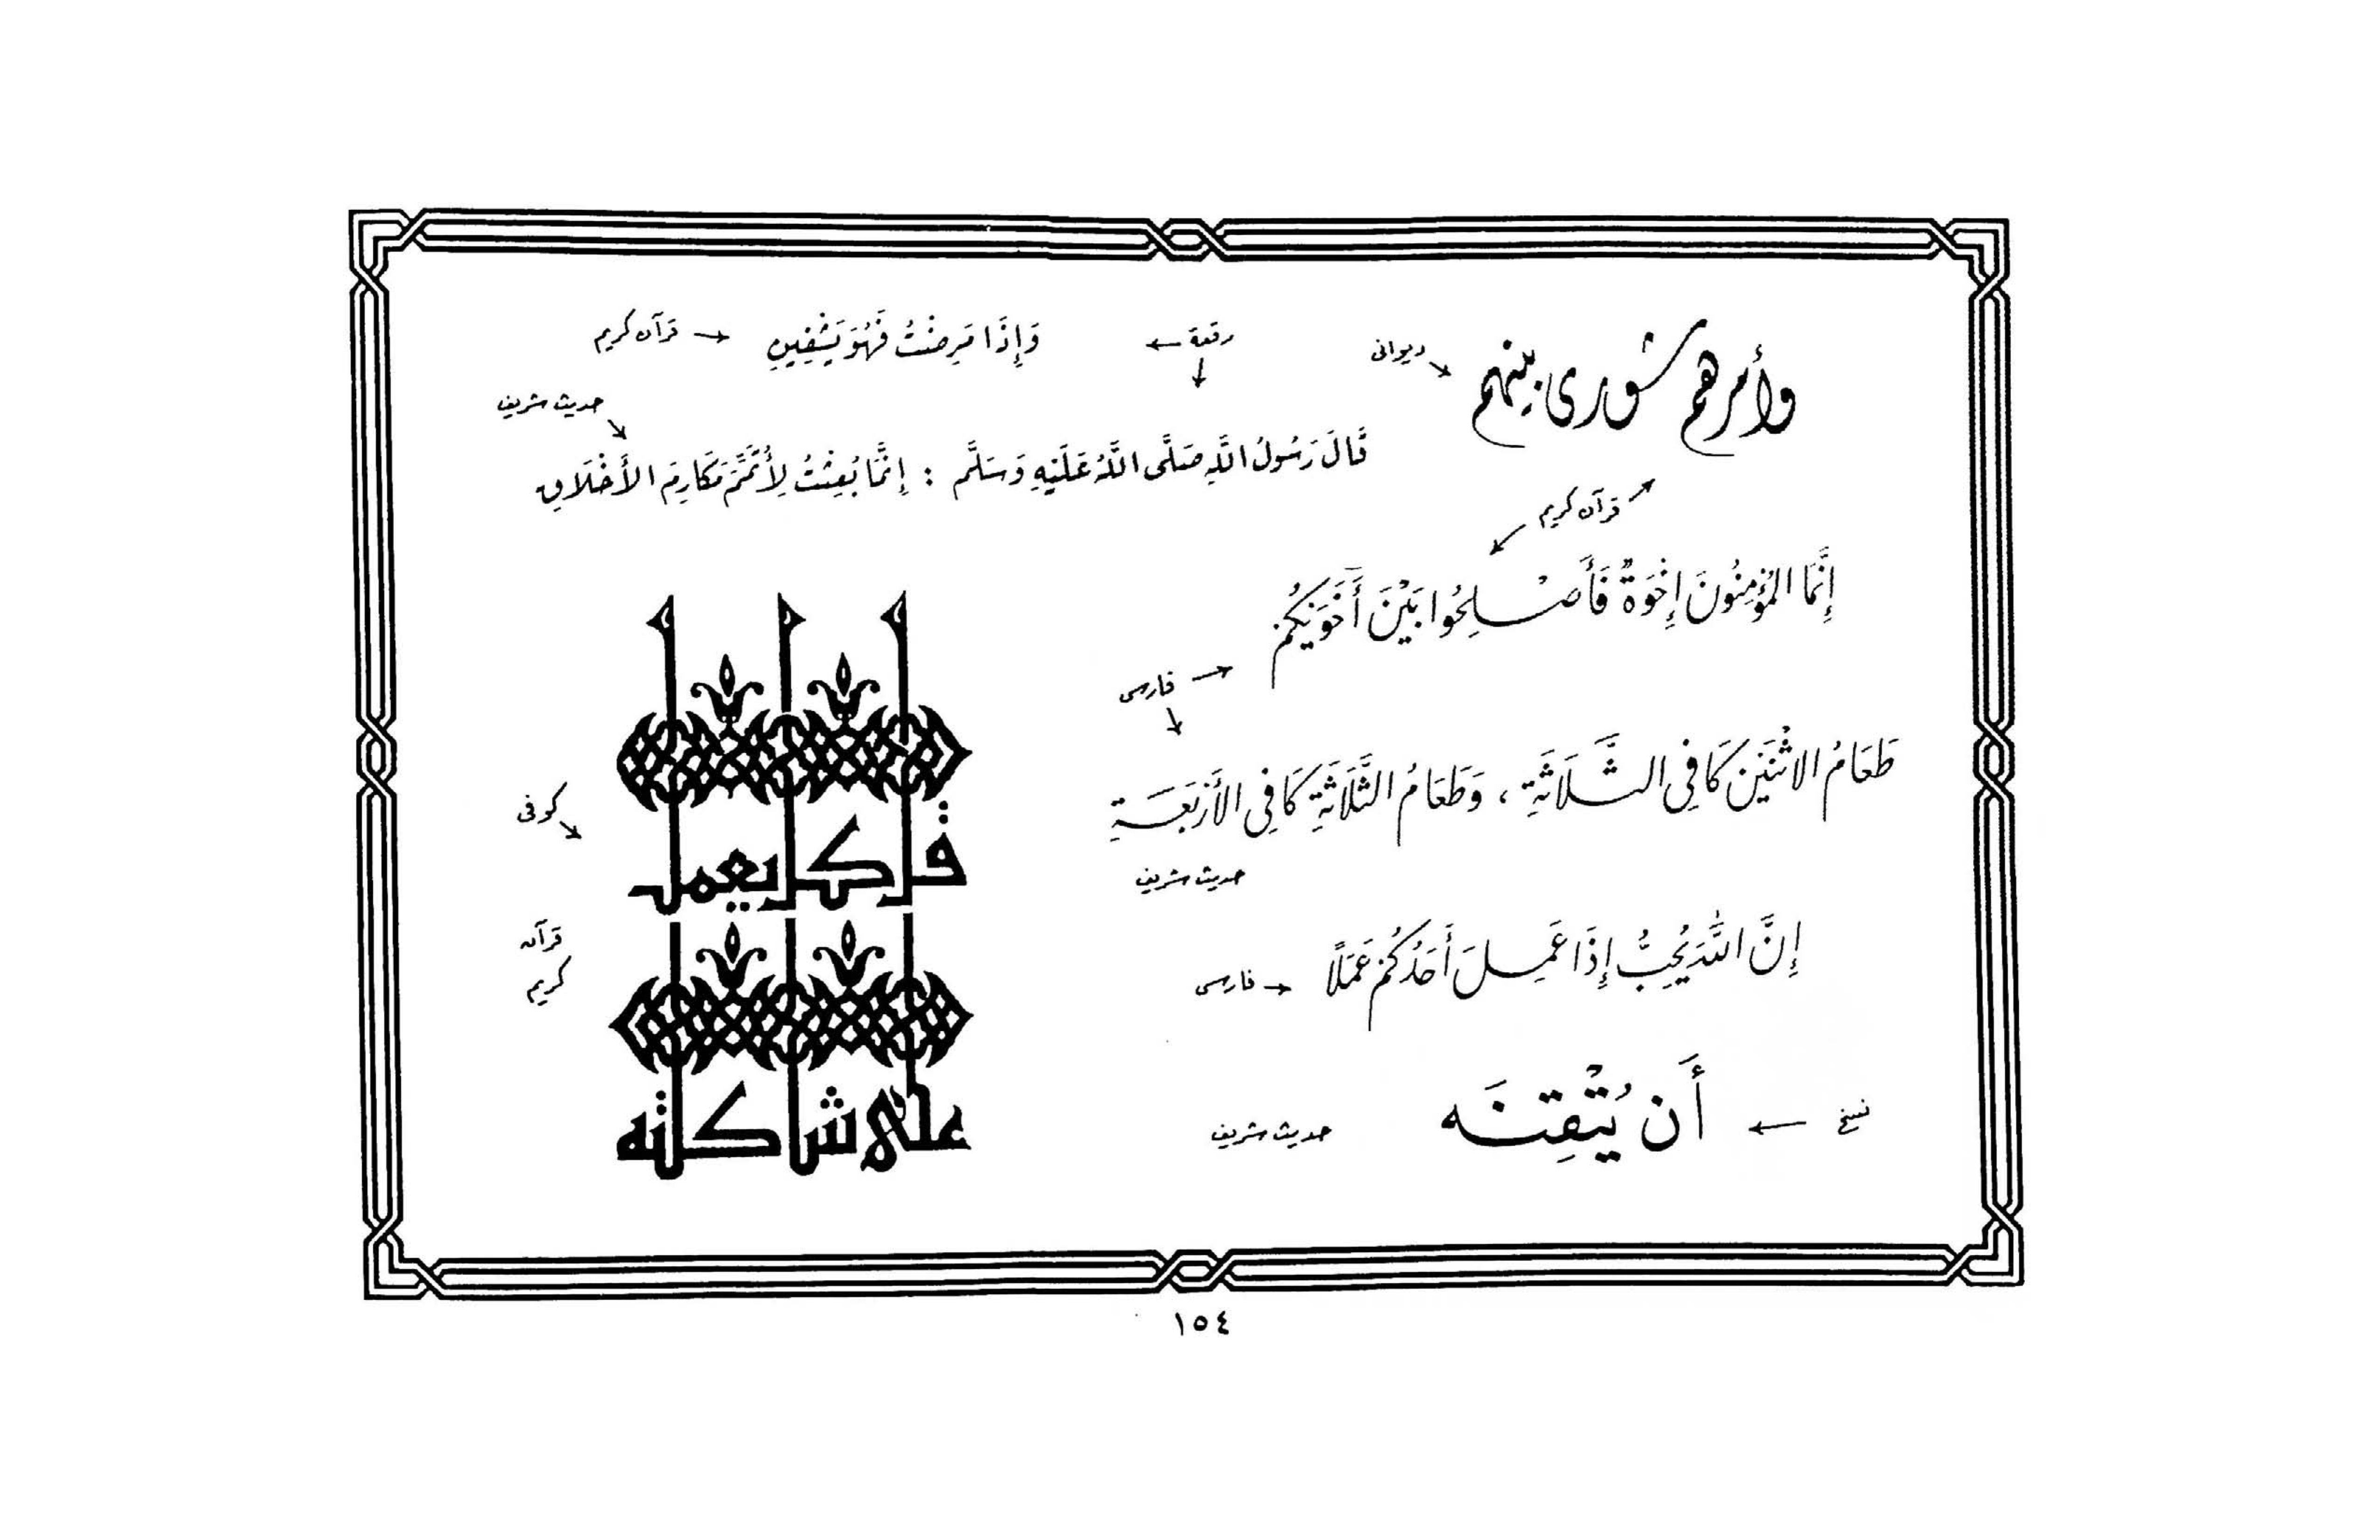 وأمرهم شورى بينهم
ديواني
رقعة
وَإِذَا مَرِضْتُ فَهُوَ يَشْفِينِ
قرآن كريم
حديث شريف
قَالَ رَسُولُ اللَّهِ صَلَّى اللَّهُ عَلَيْهِ وَسَلَّم : إِنَّمَا بُعِثْتُ لِأُتَمِّمَ مَكَارِمَ الأَخْلَاقِ
قرآن كريم
إِنَّمَا المُؤْمِنُونَ إِخْوَةٌ فَأَصْلِحُوا بَيْنَ أَخَوَيْكُمْ
فارسى
طَعَامُ الاثْنَيْنِ كَافِي الثَّلَاثَةِ ، وَطَعَامُ الثَّلَاثَةِ كَافِي الأَرْبَعَةِ
حديث شريف
إِنَّ اللَّهَ يُحِبُّ إِذَا عَمِلَ أَحَدُكُمْ عَمَلًا
فارسى
نسخ
أَن يُتْقِنَه
حديث شريف
كوفى
قل كل يعمل
قرآن
كريم
على شاكلته
١٥٤